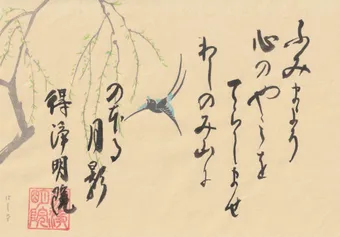 ふみまよう
心のやみを
てらしませ
わしのみ山に
のぼる
月影
得淨明院